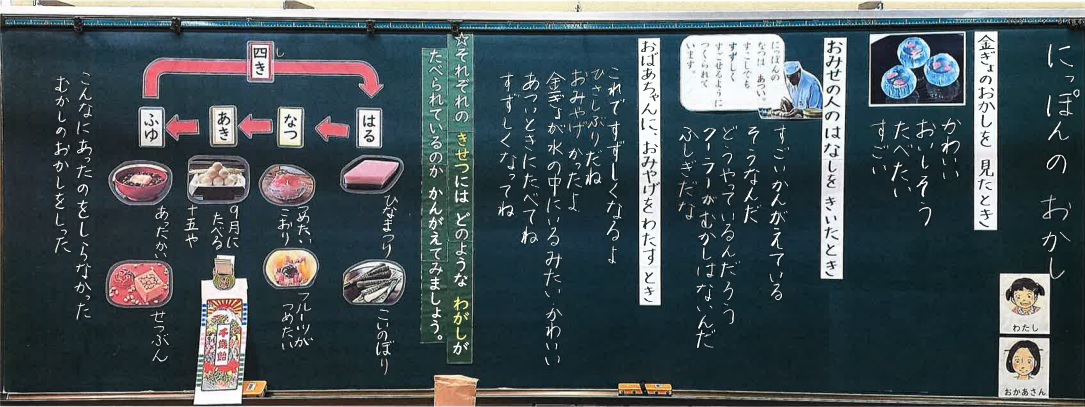 にっぽんの おかし
わたし
おかあさん
金ぎょのおかしを 見たとき
かわいい
おいしそう
たべたい
すごい
おみせの人のはなしを きいたとき
にっぽんの
なつは あつい。
すこしでも
すずしく
すごせるように
つくられて
います。
すごいかんがえている
そうなんだ
どうやっているんだろう
クーラーがむかしはないんだ
ふしぎだな
おばあちゃんに、おみやげを わたす とき
これですずしくなるよ
ひさしぶりだね
おみやげかったよ
金ぎょが水の中にいるみたい、かわいい
あついときにたべてね
すずしくなってね
☆それぞれの きせつには どのような わがしが
たべられているのか かんがえてみましょう。
四き
し
はる
なつ
あき
ふゆ
ひなまつり
こいのぼり
つめたい
こおり
フルーツが
つめたい
9月に
たべる
十五や
千歳飴
あったかい
せつぶん
こんなにあったのをしらなかった
むかしのおかしをしった